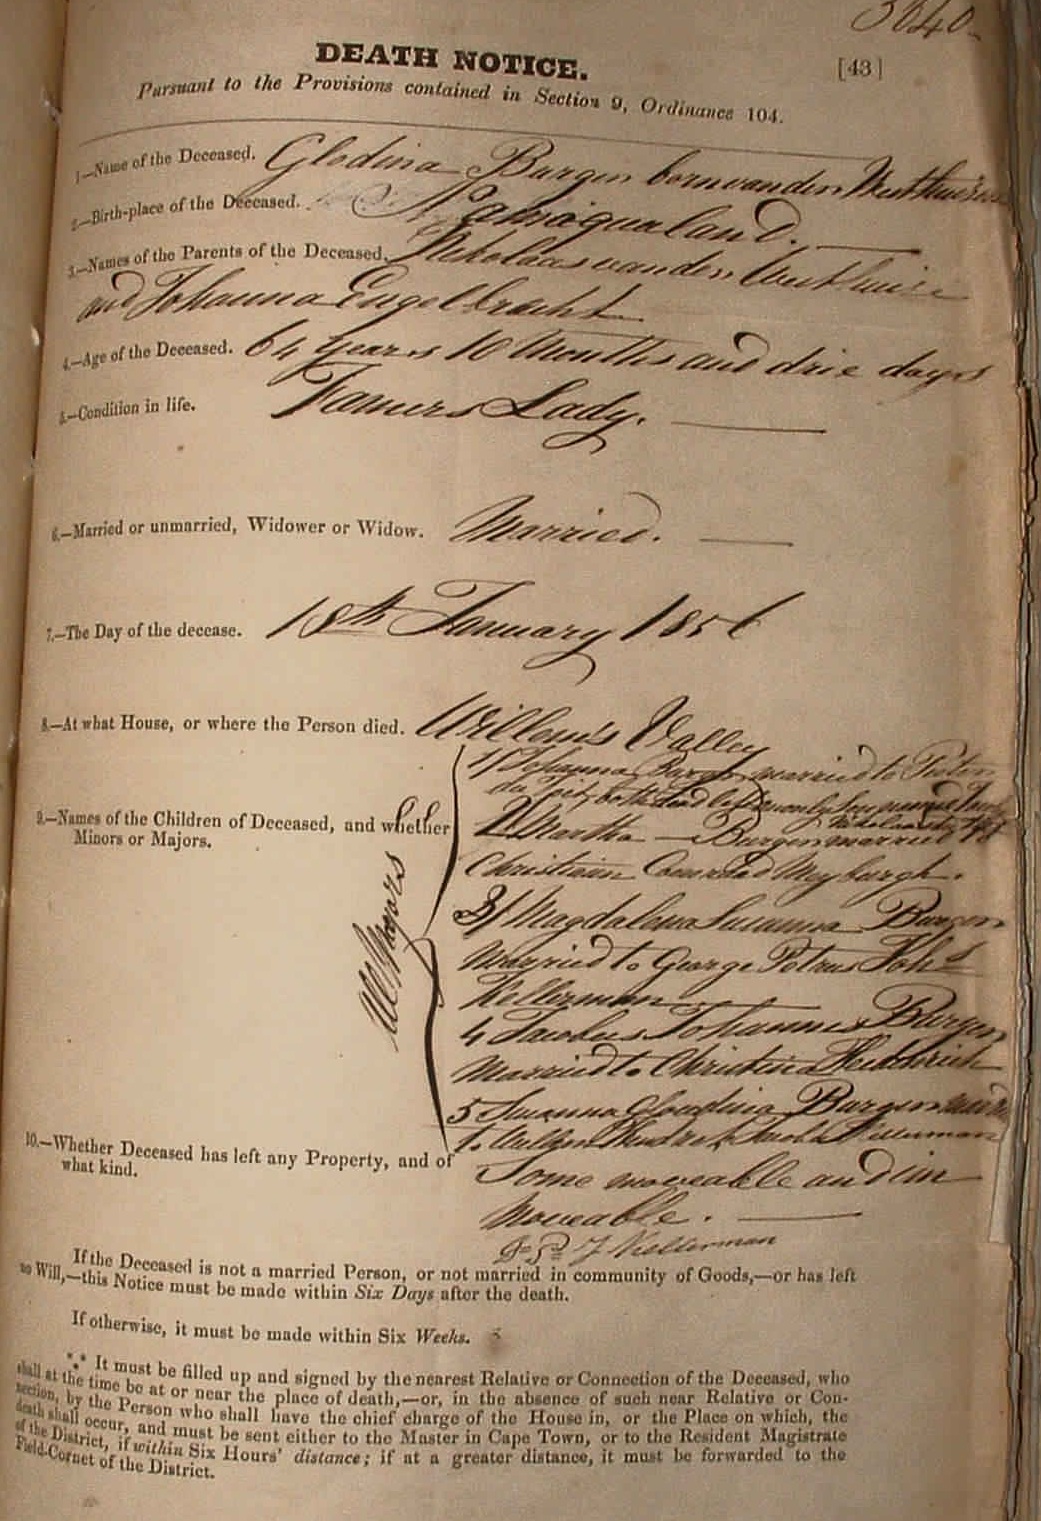 3640
DEATH NOTICE.
[43]
Pursuant to the Provisions contained in Section 9, Ordinance 104.
1.—Name of the Deceased. Glodina Burger born van den
2.—Birth-place of the Deceased. Namaqualand.
3.—Names of the Parents of the Deceased. Nikolaas van den
and Johanna Engelbracht
4.—Age of the Deceased. 64 years 10 Months and drie days
5.—Condition in life. Famers Lady.
6.—Married or unmarried, Widower or Widow. Married.
7.—The Day of the decease. 18th January 1856
8.—At what House, or where the Person died. Willems Valley
9.—Names of the Children of Deceased, and whether
Minors or Majors.
All Majors
1/ Johanna Burger married to
2/ Martha Burger married to
Christiaan Conrad Meyburgh.
3/ Magdalena Susanna Burger
Married to George Petrus Johs
Kellerman
4 Jacobus Johannes Burger
Married to Christina
5 Susanna Glaudina Burger
to Willem Hendrik Jacob Kellerman
10.—Whether Deceased has left any Property, and of
what kind.
Some moveable and im
moveable.
J Kellerman
If the Deceased is not a married Person, or not married in community of Goods,—or has left
no Will,—this Notice must be made within Six Days after the death.
If otherwise, it must be made within Six Weeks.
*** It must be filled up and signed by the nearest Relative or Connection of the Deceased, who
shall at the time be at or near the place of death,—or, in the absence of such near Relative or Con-
section, by the Person who shall have the chief charge of the House in, or the Place on which, the
death shall occur, and must be sent either to the Master in Cape Town, or to the Resident Magistrate
of the District, if within Six Hours' distance; if at a greater distance, it must be forwarded to the
Field-Cornet of the District.